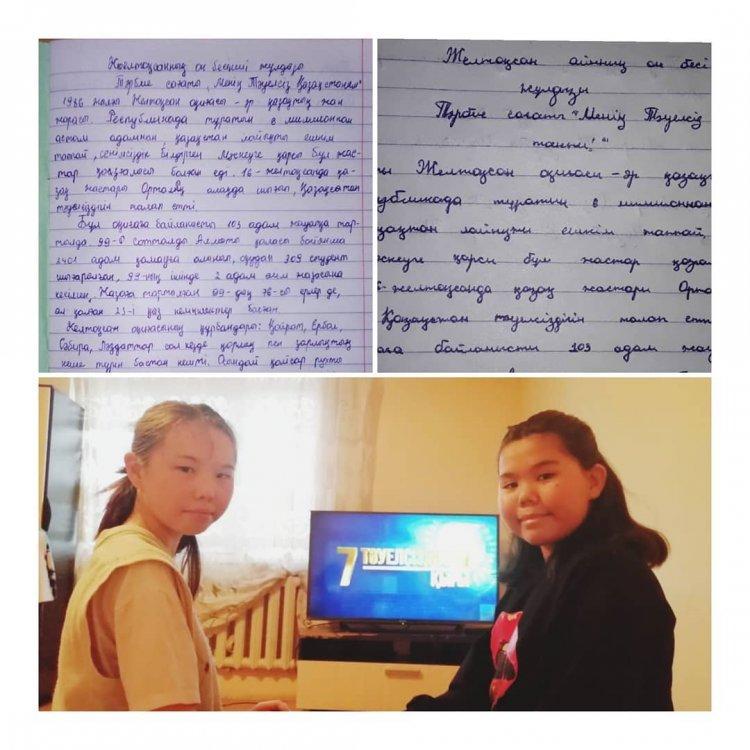 Желтоқсанның он бесінші жұлдызы
Тәрбие сағаты "Менің Тәуелсіз Қазақстаным"
1986 жылғы Желтоқсан оқиғасы - әр қазақтың жан
жарасы. Республикада тұратын 6 миллионнан
астам адамнан, қазақстан лайықты ешкім
таппай, сенімсіздік білдірген Мәскеуге қарсы бұл жас-
тар қозғалысы болған еді. 16 - желтоқсанда қа-
зақ жастары Орталық алаңда шығып, Қазақстан
тәуелсіздігін талап етті.
Бұл оқиғаға байланысты 103 адам жауапқа тар-
тылды. 99-ы сотталды Алматы қаласы бойынша
2401 адам қамауға алынып, оқудан 309 студент
шығарылған, 99-ның ішінде 2 адам өлім жазасына
кесілген, Жазаға тартылған 99-дың 76-сы ер де,
ал қалған 23-і қыз келіншектер болған.
Желтоқсан оқиғасының құрбандары: Қайрат, Ербол,
Сәбира, Ләззаттар сол кезде қорлық пен зорлықтың
неше түрін бастан кешті. Осындай қайсар рухты
Желтоқсан айының он бесі
жұлдызы
Тәрбие сағаты "Менің Тәуелсіз
таным!"
Желтоқсан оқиғасы - әр қазақ
публикада тұратын 6 миллионнан
зақстан лайықты ешкім таппай,
әскеуге қарсы бұл жастар қозғал
6-желтоқсанда қазақ жастары Орта
Қазақстан тәуелсіздігін талап етті
аға байланысты 103 адам жау
7 ТӘУЕЛСІЗДІКТІҢ
ҚЫРЫ